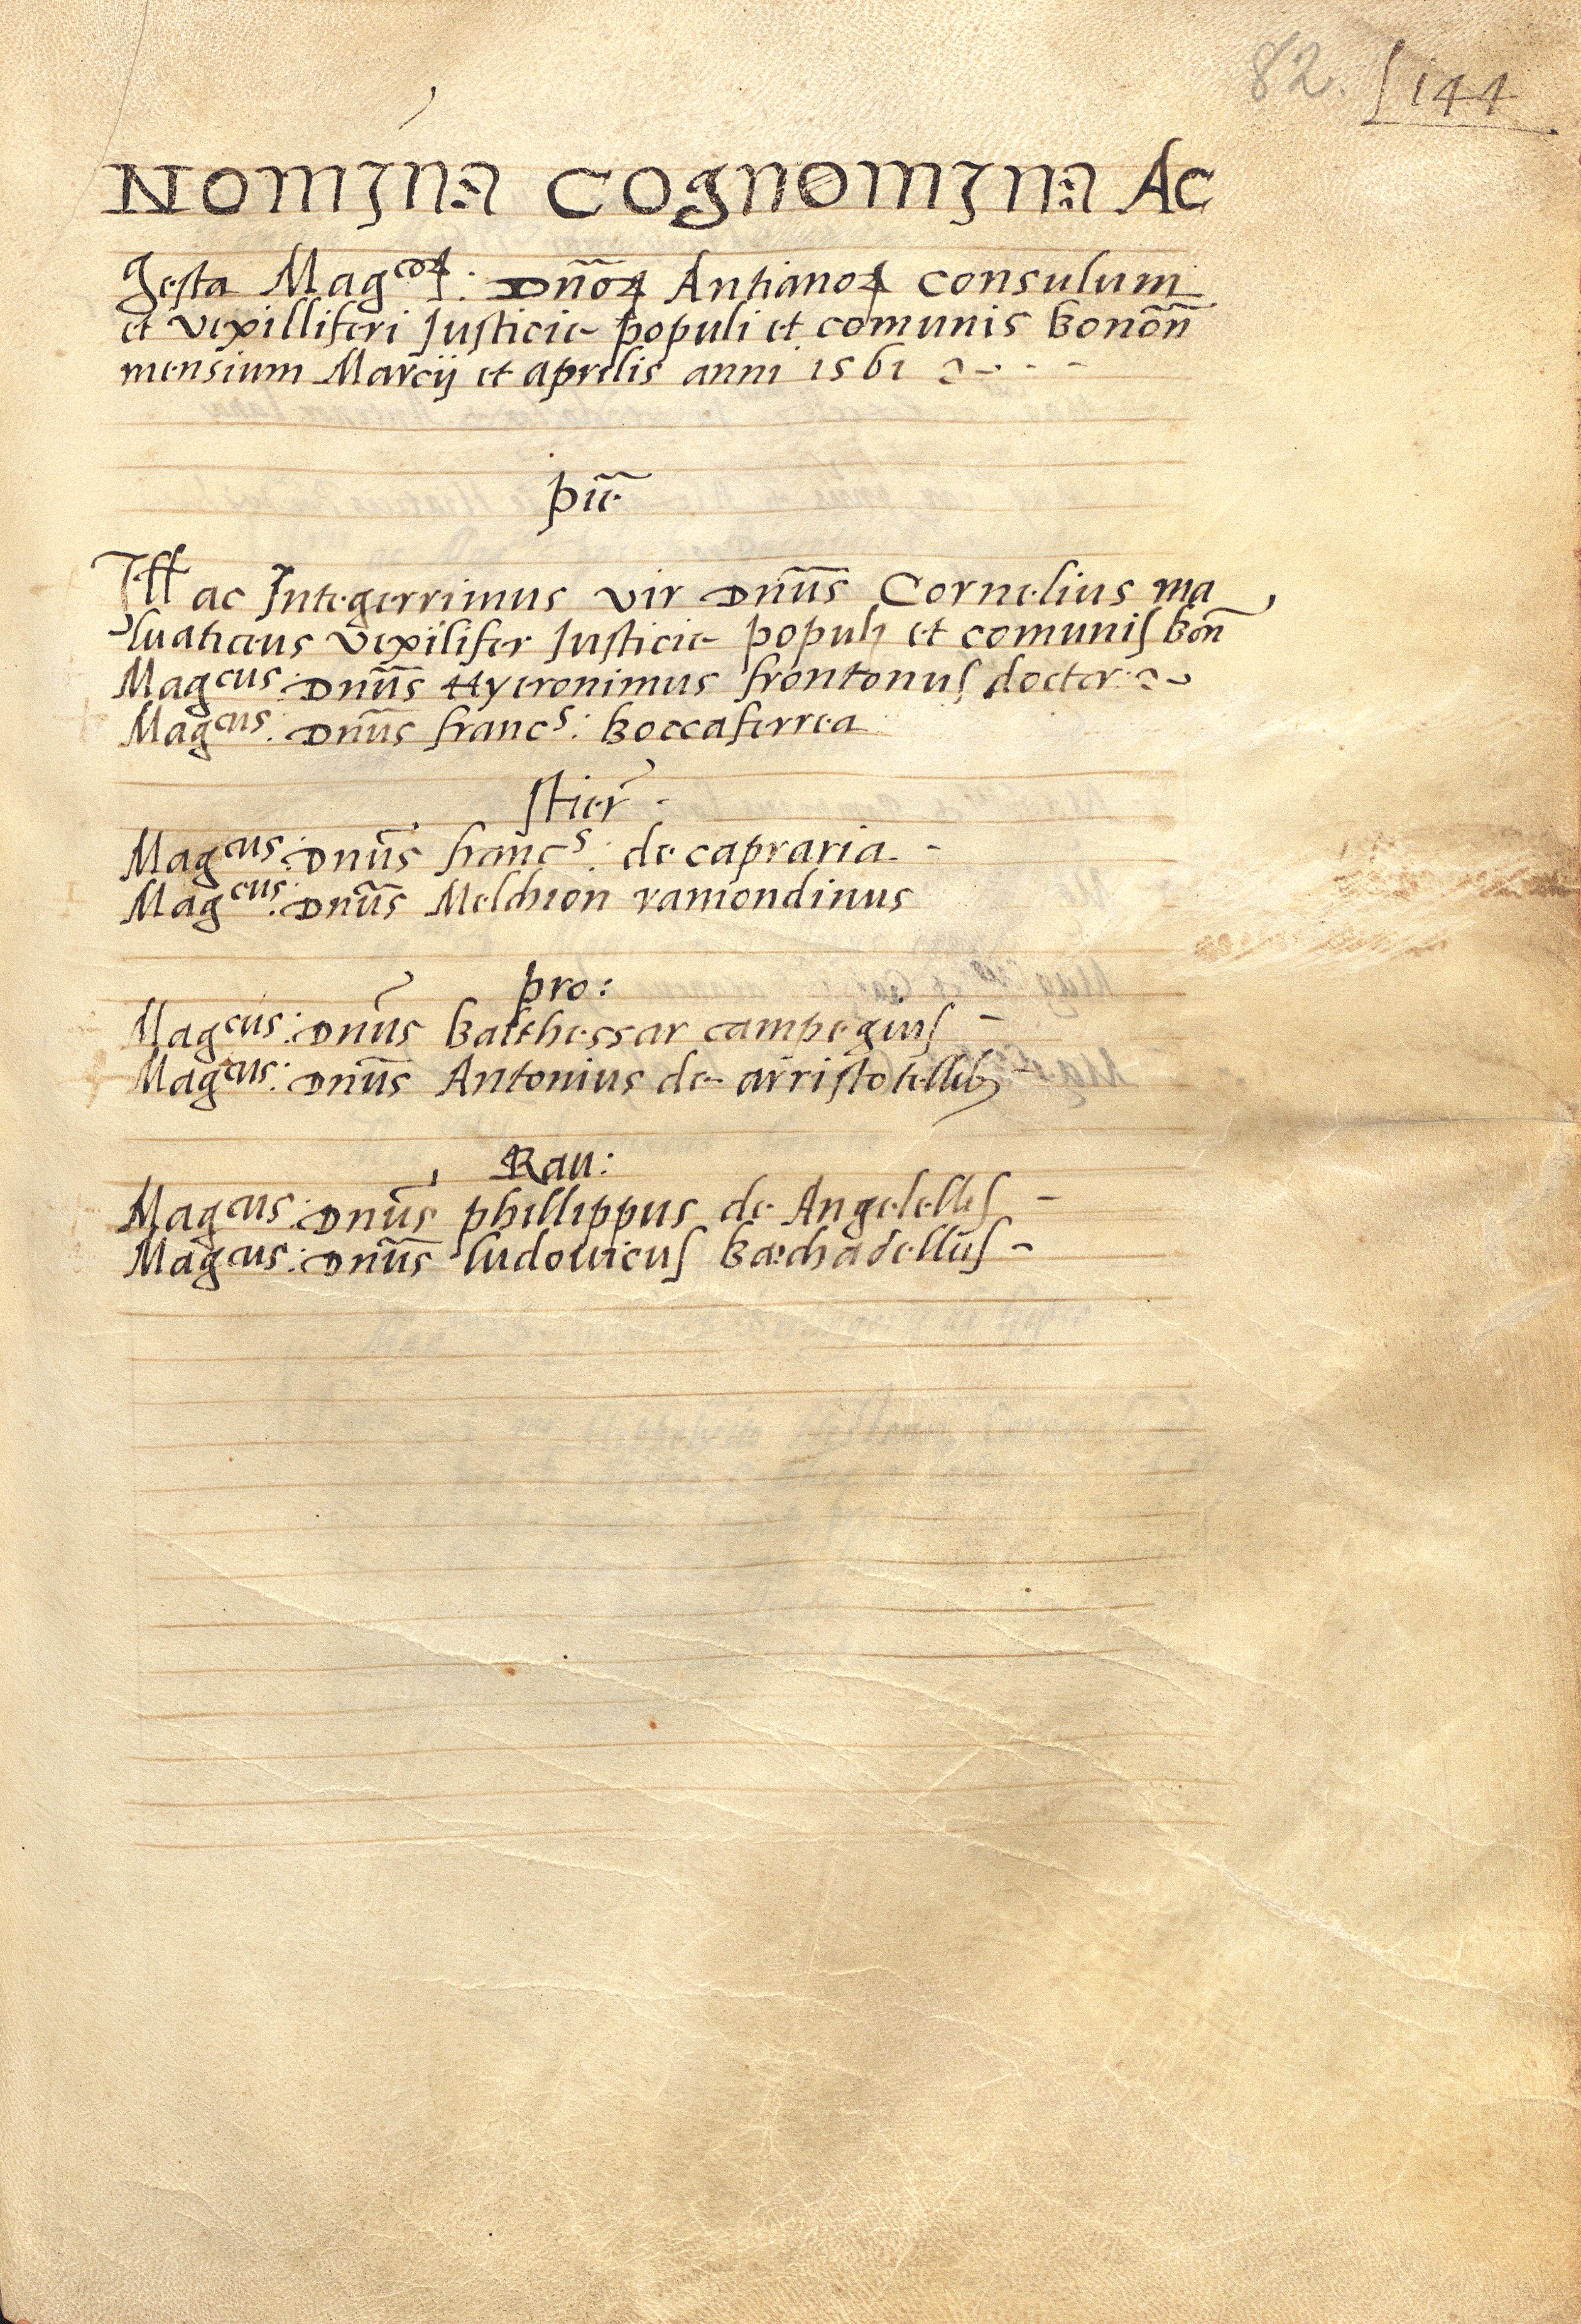 82. 144
NOMINA COGNOMINA AC
gesta Mag^coꝝ: Dnõꝝ Antianoꝝ consulum
et vexilliferi Justicie populi et comunis bonoñ
mensium Marcij et aprilis anni 1561
piẽ
Ill ac Integerrimus vir Dnũs Cornelius ma
luaticus vexilifer Justicie populi et comunis boñ
Mag^cus: Dnũs Hyeronimus frontonus doctor
Mag^cus: Dnũs franc^s: boccaferrea
stier̃
Mag^cus: Dnũs franc^s: de capraria
Mag^cus: Dnũs Melchion ramondinus
pro:
Mag^cus: Dnũs balthessar campegius
Mag^cus: Dnũs Antonius de arristotellib
Rau:
Mag^cus: Dnũs phillippus de Angelellis
Mag^cus: Dnũs ludovicus bechadellus